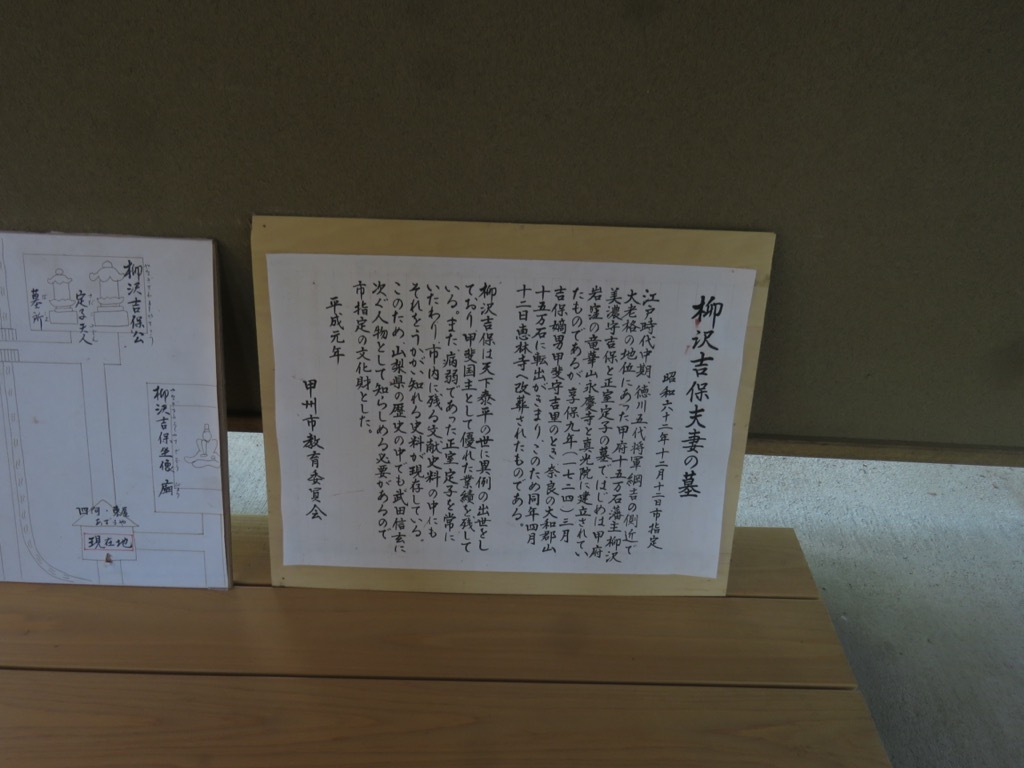 柳沢吉保夫妻の墓
昭和六十三年十二月十二日市指定
江戸時代中期、徳川五代将軍綱吉の側近で
大老格の地位にあった甲府十五万石藩主柳沢
美濃守吉保と正室定子の墓で、はじめは甲府
岩窪の竜華山永慶寺と真光院に建立されてい
たものであるが、享保九年(一七二四)三月
吉保嫡男甲斐守吉里のとき、奈良の大和郡山
十五万石に転出がきまり、このため同年四月
十二日恵林寺へ改葬されたものである。
柳沢吉保は天下泰平の世に異例の出世をし
ており、甲斐国主として優れた業績を残して
いる。また病弱であった正室定子を常に
いたわり、市内に残る文献史料の中にも
それをうかがい知れる史料が現存している。
このため、山梨県の歴史の中でも武田信玄に
次ぐ人物として知らしめる必要があるので
市指定の文化財とした。
平成元年
甲州市教育委員会
柳沢吉保公
定子夫人
墓所
柳沢吉保坐像
廟
四阿・東屋
あずまや
現在地